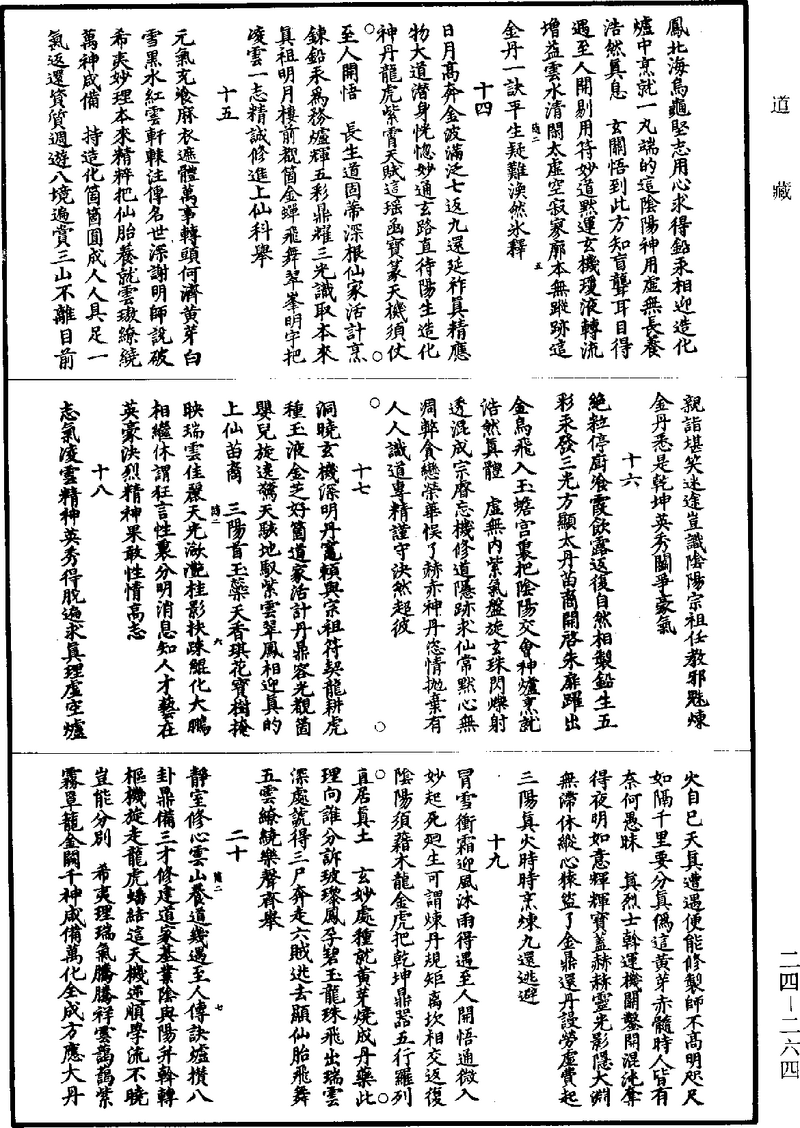 道藏
鳳北海烏龜堅志用心求得鉛汞相迎造化
爐中烹就一丸端的這陰陽神用虛無長養
浩然真息　玄關悟到此方知盲聾耳目得
遇至人開剔用符妙道默運玄機瓊液轉流
增益雲水清閑太虛空寂寥廓本無蹤跡這
金丹一訣平生疑難渙然氷釋
十四
日月高奔金波滿泛七返九還延祚真精應
物大道潛身恍惚妙通玄路直待陽生造化
神丹龍虎紫霄天賦這瑶函寶篆天機須仗
至人開悟　長生道固蒂深根仙家活計烹
鍊鉛汞為務爐輝五彩鼎耀三光識取本來
真祖明月樓前覩箇金蟬飛舞翠峯明宇把
凌雲一志精誠修進上仙科舉
十五
元氣充飡麻衣遮體萬事轉頭何濟黃芽白
雪黑水紅雲軒轅注傳名世深謝明師説破
希夷妙理本來精粹把仙胎養就雲璈繚繞
萬神咸備　持造化箇箇圓成人人具足一
氣返還貲質週遊八境遍賞三山不離目前
親詣堪笑迷途豈識陰陽宗祖任教邪魁煉
金丹悉是乾坤英秀鬭爭豪氣
十六
絶粒停厨飡霞飲露返復自然相製鉛生五
彩汞發三光方顯太丹苗裔開啓朱扉躍出
金烏飛入玉蟾宮裏把陰陽交會神爐烹就
浩然真體　虛無內紫氣盤旋玄珠閃爍射
透混成宗㫺忘機修道隱跡求仙常默心無
凋弊貪戀榮華悮了赫赤神丹恣情抛棄有
人人識道專精謹守決然超彼
十七
洞曉玄機深明丹竈頼與宗祖符契龍耕虎
種玉液金芝好箇道家活計丹鼎容光覩箇
嬰兒旋遶驚天駭地馭紫雲翠鳳相迎真的
上仙苗裔　三陽首玉藥天香琪花寶樹掩
映瑞雲佳麗天光瀲灧桂影扶踈鯤化大鵬
相繼休謂狂言性裏分明消息知人才藝在
英豪決烈精神果敢性情高志
十八
志氣凌雲精神英秀得脫遍求真理虛空爐
火自已天真遭遇便能修製師不高明咫尺
如隔千里要分真僞這黃芽赤髓時人皆有
奈何愚昧　真烈士幹運機關鑿開混沌奪
得夜明如意輝輝寶蓋赫赫靈光影隱大淵
無滯休縱心猿監了金鼎還丹謾勞虛費起
三陽真火時時烹煉九還逃避
十九
冒雪衝霜迎風沐雨得遇至人開悟通微入
妙起死廻生可謂煉丹規矩离坎相交返復
陰陽須藉木龍金虎把乾坤鼎器五行羅列
真居真土　玄妙處種就黃芽燒成丹藥此
理向誰分訴玻瓈鳳孕碧玉龍珠飛出瑞雲
深處諕得三尸奔走六賊迯去顯仙胎飛舞
五雲繚繞樂聲齊舉
二十
靜室修心雲山養道幾遇至人傳訣爐攢八
卦鼎備三才修建道家基業陰與陽升幹轉
樞機旋走龍虎蟠結這天機逆順學流不曉
豈能分別　希夷理瑞氣騰騰祥雲藹藹紫
霧罩籠金闕千神咸備萬化全成方應大丹
二四—二六四